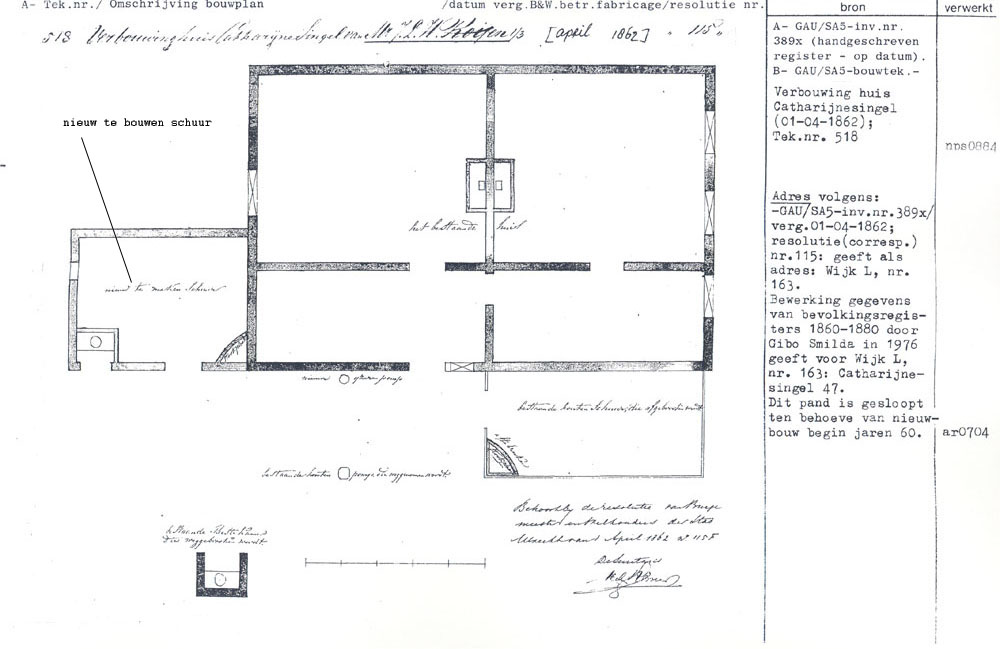 A- Tek.nr./ Omschrijving bouwplan /datum verg.B&W.betr.fabricage/resolutie nr.
bron
verwerkt
518 Verbouwing huis Catharijne Singel van Mr. J. L. H. 1/3 [april 1862] " 115 "
nieuw te bouwen schuur
het bestaande huis
nieuw te maken Schuur
nieuwe pomp
bestaande houten Schuur, die afgebroken wordt
bestaande houten pomp die weggenomen wordt
bestaande
die weggebroken wordt
Behoort bij de resolutie van Burge
meester en Wethouders der Stad
Utrecht van 1 April 1862 No 115
De Secretaris
A- GAU/SA5-inv.nr.
389x (handgeschreven
register - op datum).
B- GAU/SA5-bouwtek.-
Verbouwing huis
Catharijnesingel
(01-04-1862);
Tek.nr. 518
nps0884
Adres volgens:
-GAU/SA5-inv.nr.389x/
verg.01-04-1862;
resolutie(corresp.)
nr.115: geeft als
adres: Wijk L, nr.
163.
Bewerking gegevens
van bevolkingsregis-
ters 1860-1880 door
Gibo Smilda in 1976
geeft voor Wijk L,
nr. 163: Catharijne-
singel 47.
Dit pand is gesloopt
ten behoeve van nieuw-
bouw begin jaren 60.
ar0704